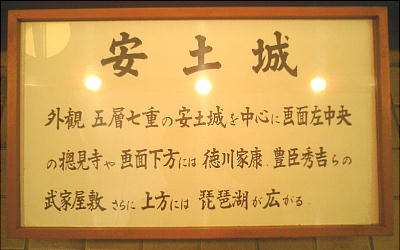 安土城
外観 五層七重の安土城を中心に画面左中央
の摠見寺や画面下方には 徳川家康、豊臣秀吉らの
武家屋敷 さらに 上方には 琵琶湖が広がる。